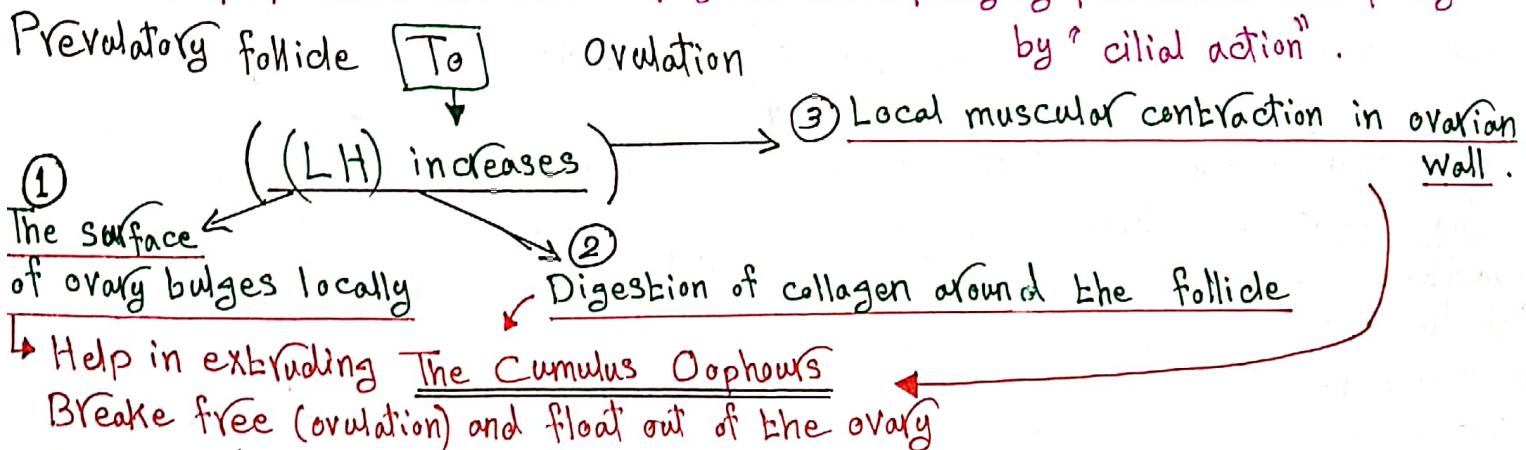 Prevulatory follicle To Ovulation
by "cilial action".
((LH) increases)
③ Local muscular contraction in ovarian
Wall.
①
The surface
of ovary bulges locally
②
Digestion of collagen around the follicle
Help in extruding The Cumulus Oophours
Breake free (ovulation) and float out of the ovary